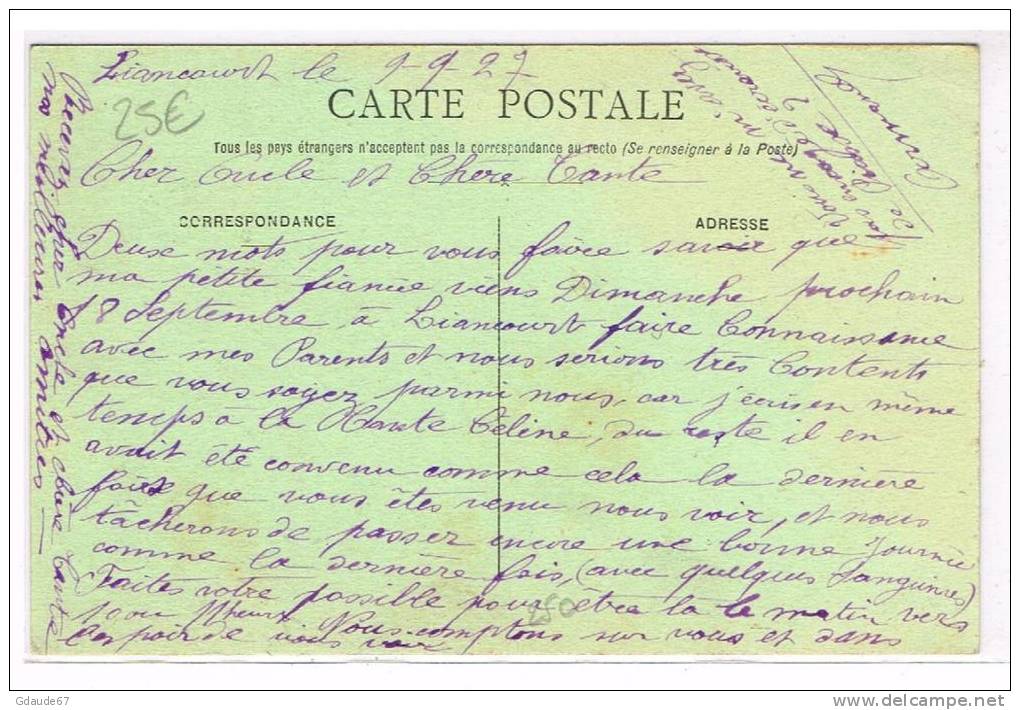 Liancourt le 9-9-27
25€
CARTE POSTALE
Tous les pays étrangers n'acceptent pas la correspondance au recto (Se renseigner à la Poste)
Cher Oncle et Chère Tante
CORRESPONDANCE
ADRESSE
Deux mots pour vous faire savoir que
ma petite fiancée viens Dimanche prochain
18 Septembre à Liancourt faire Connaissance
avec mes Parents et nous serions très Contents
que vous soyez parmi nous, car j'écris en même
temps à la Tante Céline, du reste il en
avait été convenu comme cela la dernière
fois que vous êtes venu nous voir, et nous
tâcherons de passer encore une bonne Journée
comme la dernière fois, (avec quelques Sanguines)
Faites votre possible pour être là le matin vers
10 ou 11 heures Nous comptons sur vous et dans
l'espoir de vous voir
250
Recevez cher Oncle et chère Tante
nos meilleures amitiés
Armand
Gdaude67
www.delcampe.net